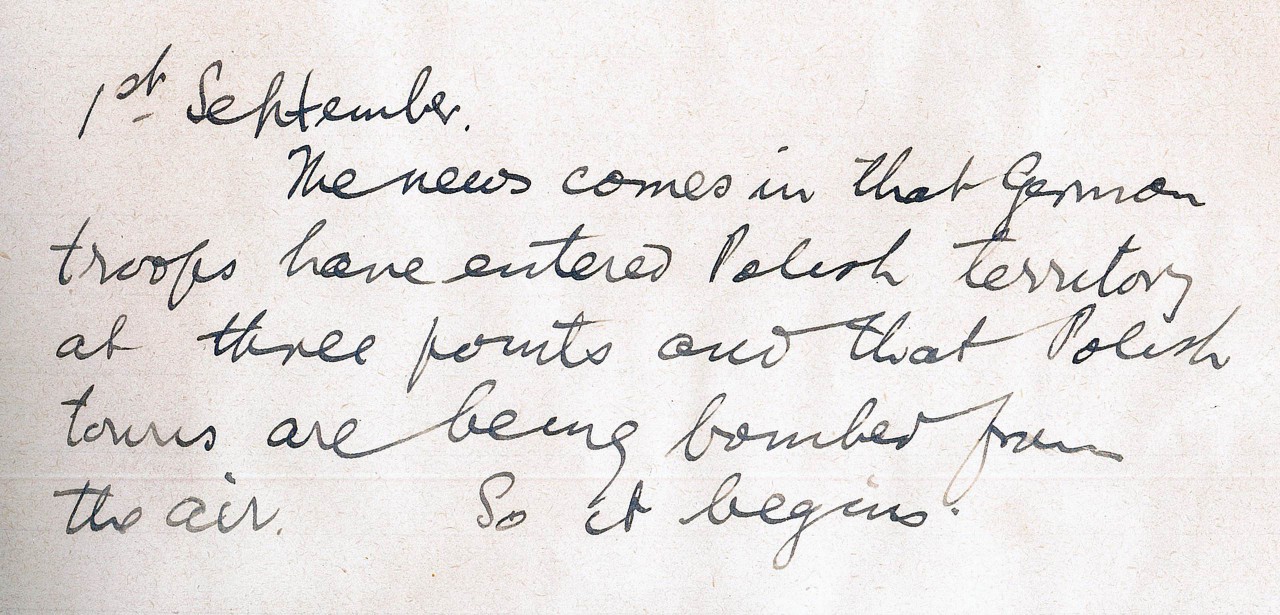 1st September.
The news comes in that German
troops have entered Polish territory
at three points and that Polish
towns are being bombed from
the air. So it begins.